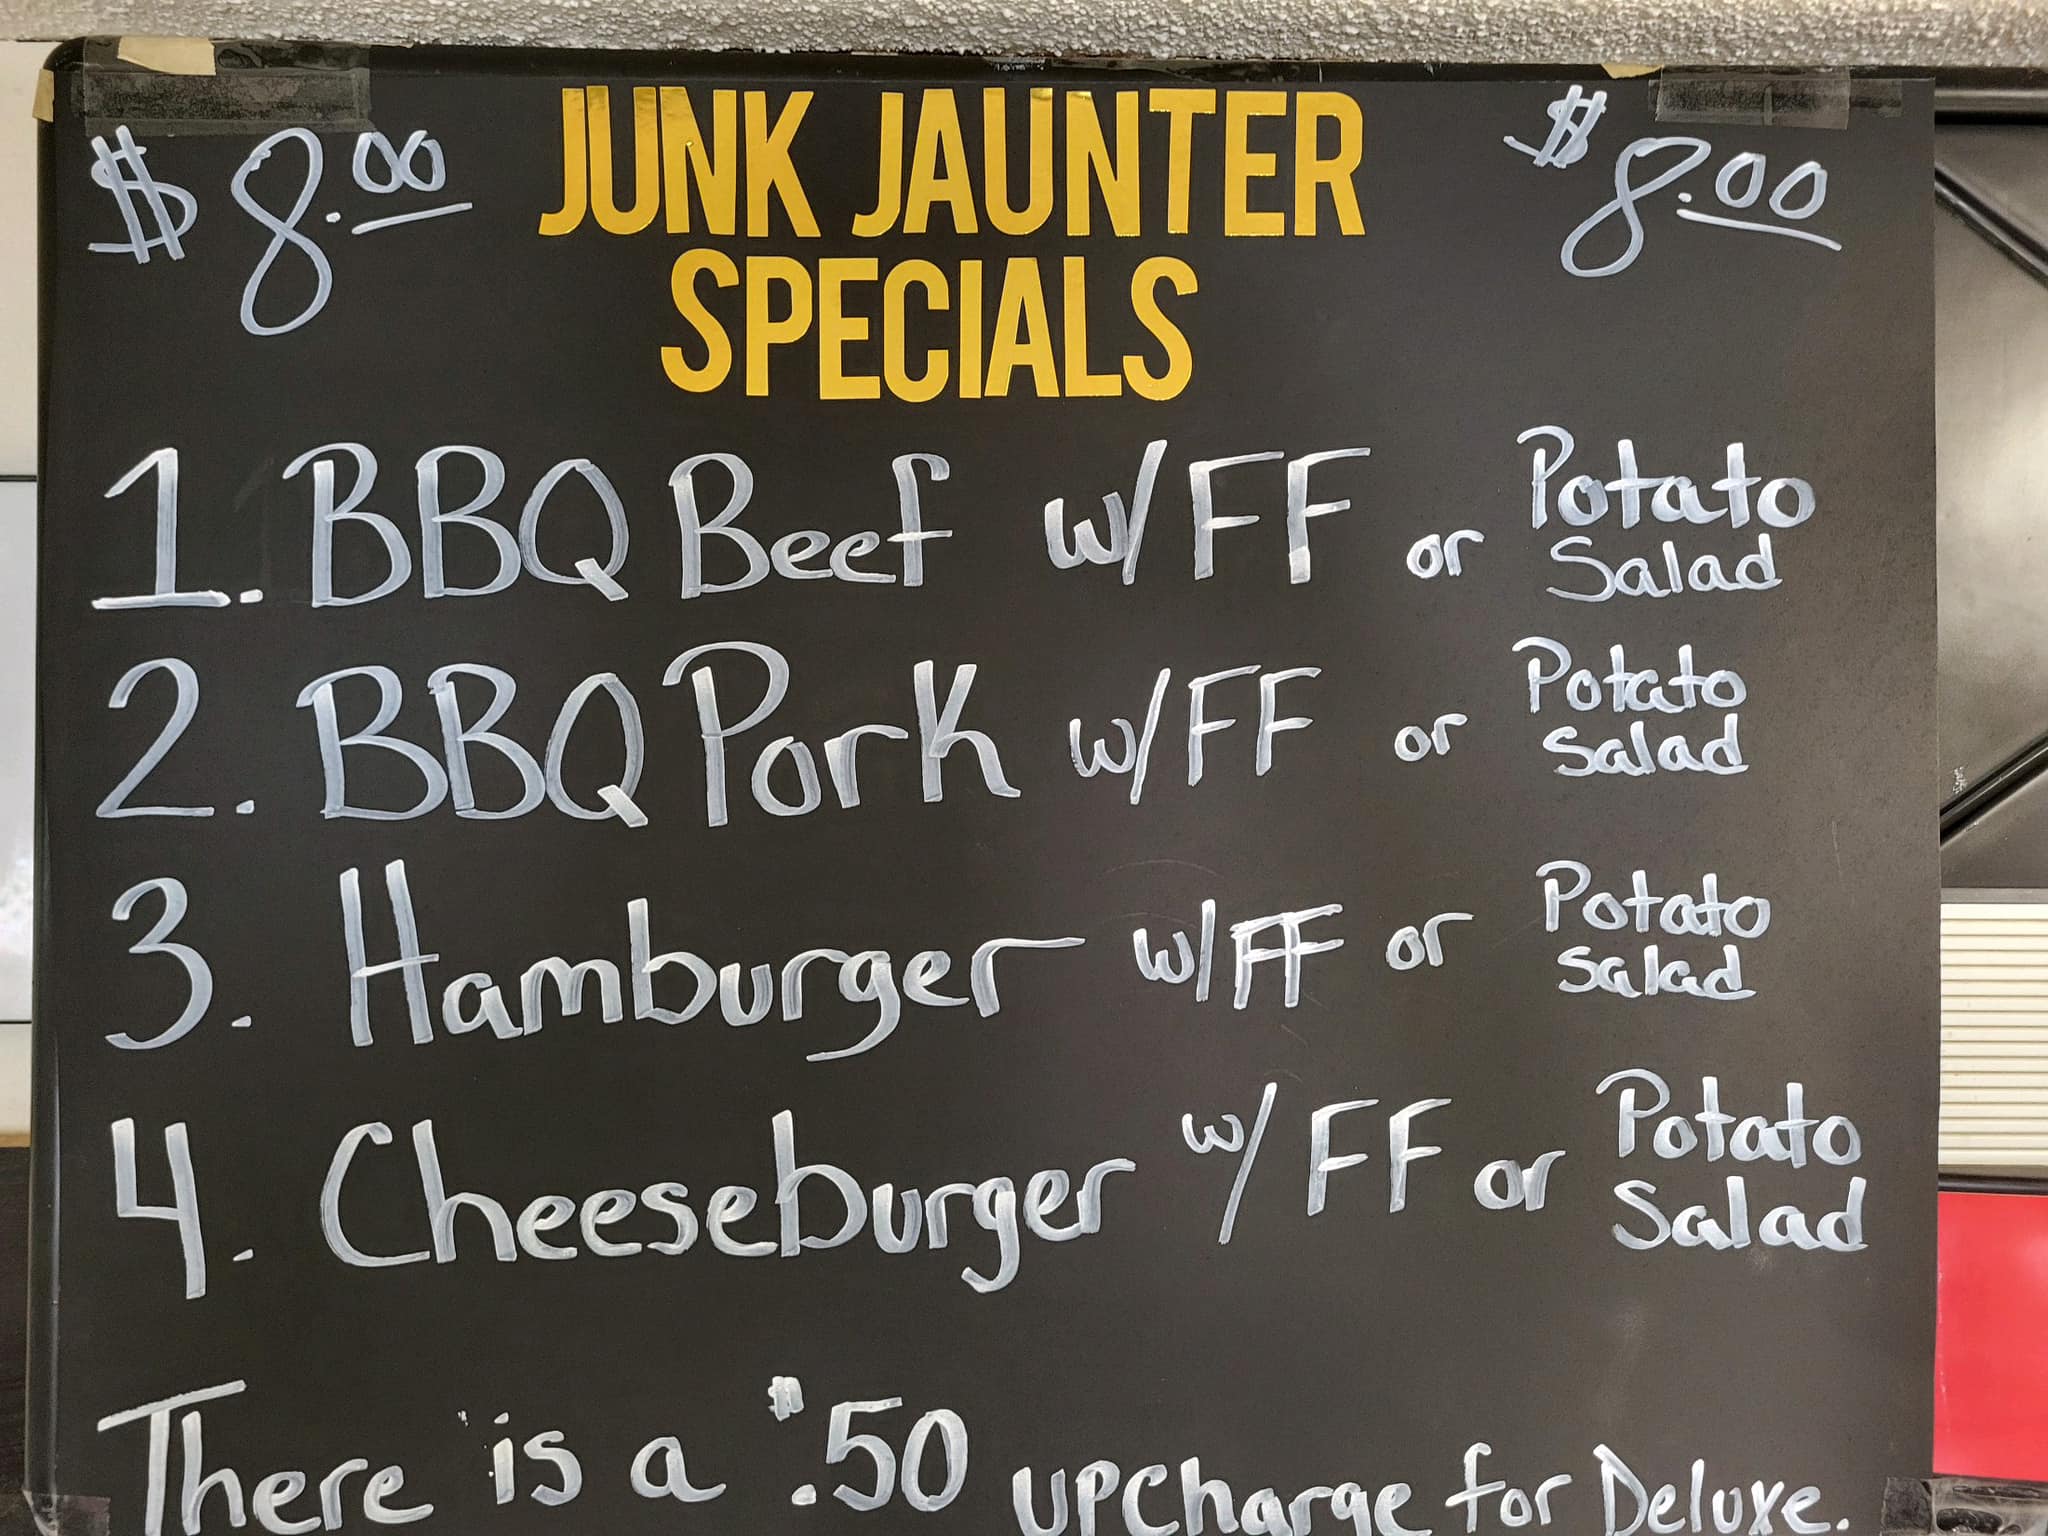 $8.00 JUNK JAUNTER $8.00
SPECIALS
1. BBQ Beef w/FF or Potato Salad
2. BBQ Pork w/FF or Potato Salad
3. Hamburger w/FF or Potato Salad
4. Cheeseburger w/FF or Potato Salad
There is a $.50 upcharge for Deluxe.